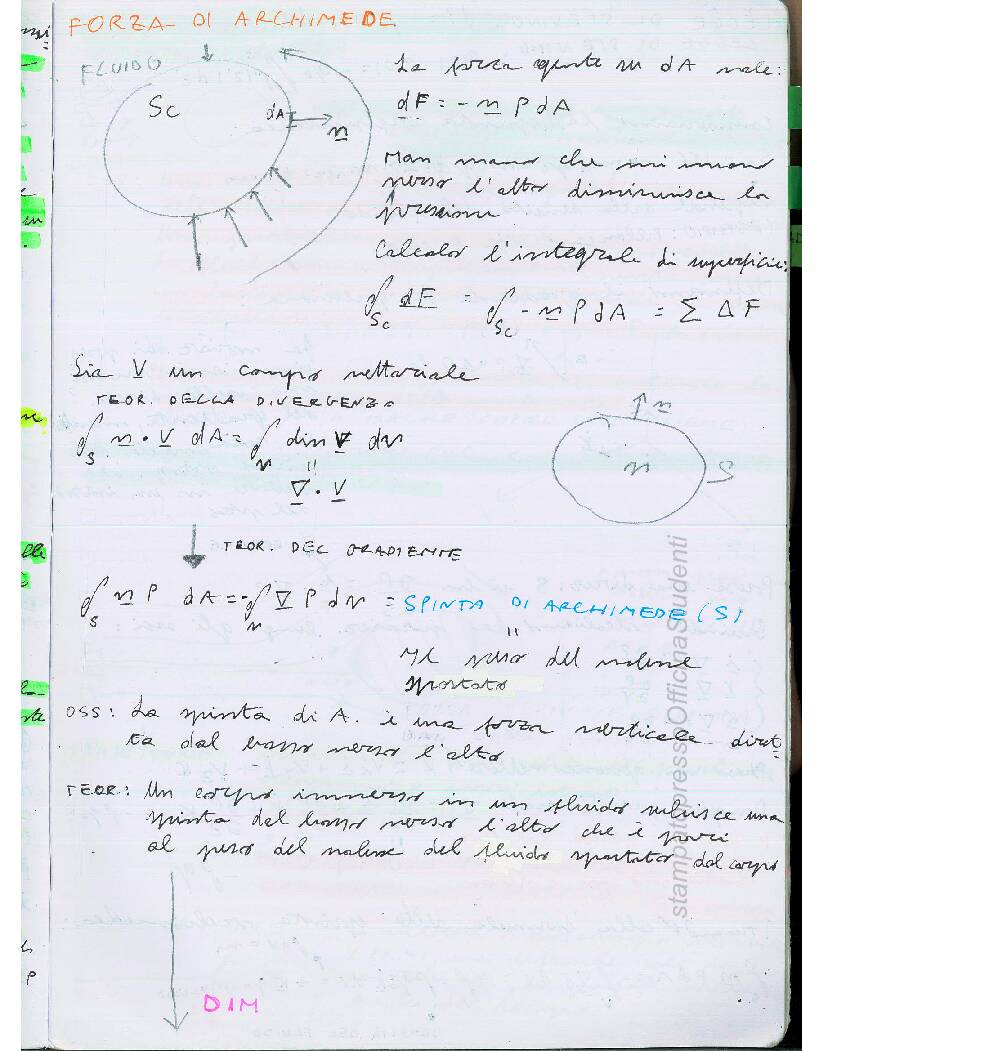 FORZA DI ARCHIMEDE
FLUIDO
Sc
dA
n
La forza agente su dA vale:
dF = - n P dA
Man mano che mi muovo
verso l'alto diminuisce la
pressione
Calcolo l'integrale di superficie:
∮Sc dF = ∮Sc - n P dA = Σ ΔF
Sia V un campo vettoriale
TEOR. DELLA DIVERGENZA
∮S n · V dA = ∫v div V dv
"
∇ · V
n
v
S
TEOR. DEL GRADIENTE
∮S n P dA = -∫v ∇ P dv = SPINTA DI ARCHIMEDE (S)
"
Al peso del volume
spostato
OSS: La spinta di A. è una forza verticale diret-
ta dal basso verso l'alto
TEOR: Un corpo immerso in un fluido subisce una
spinta dal basso verso l'alto che è pari
al peso del volume del fluido spostato dal corpo
DIM
stampato presso OfficinaStudenti